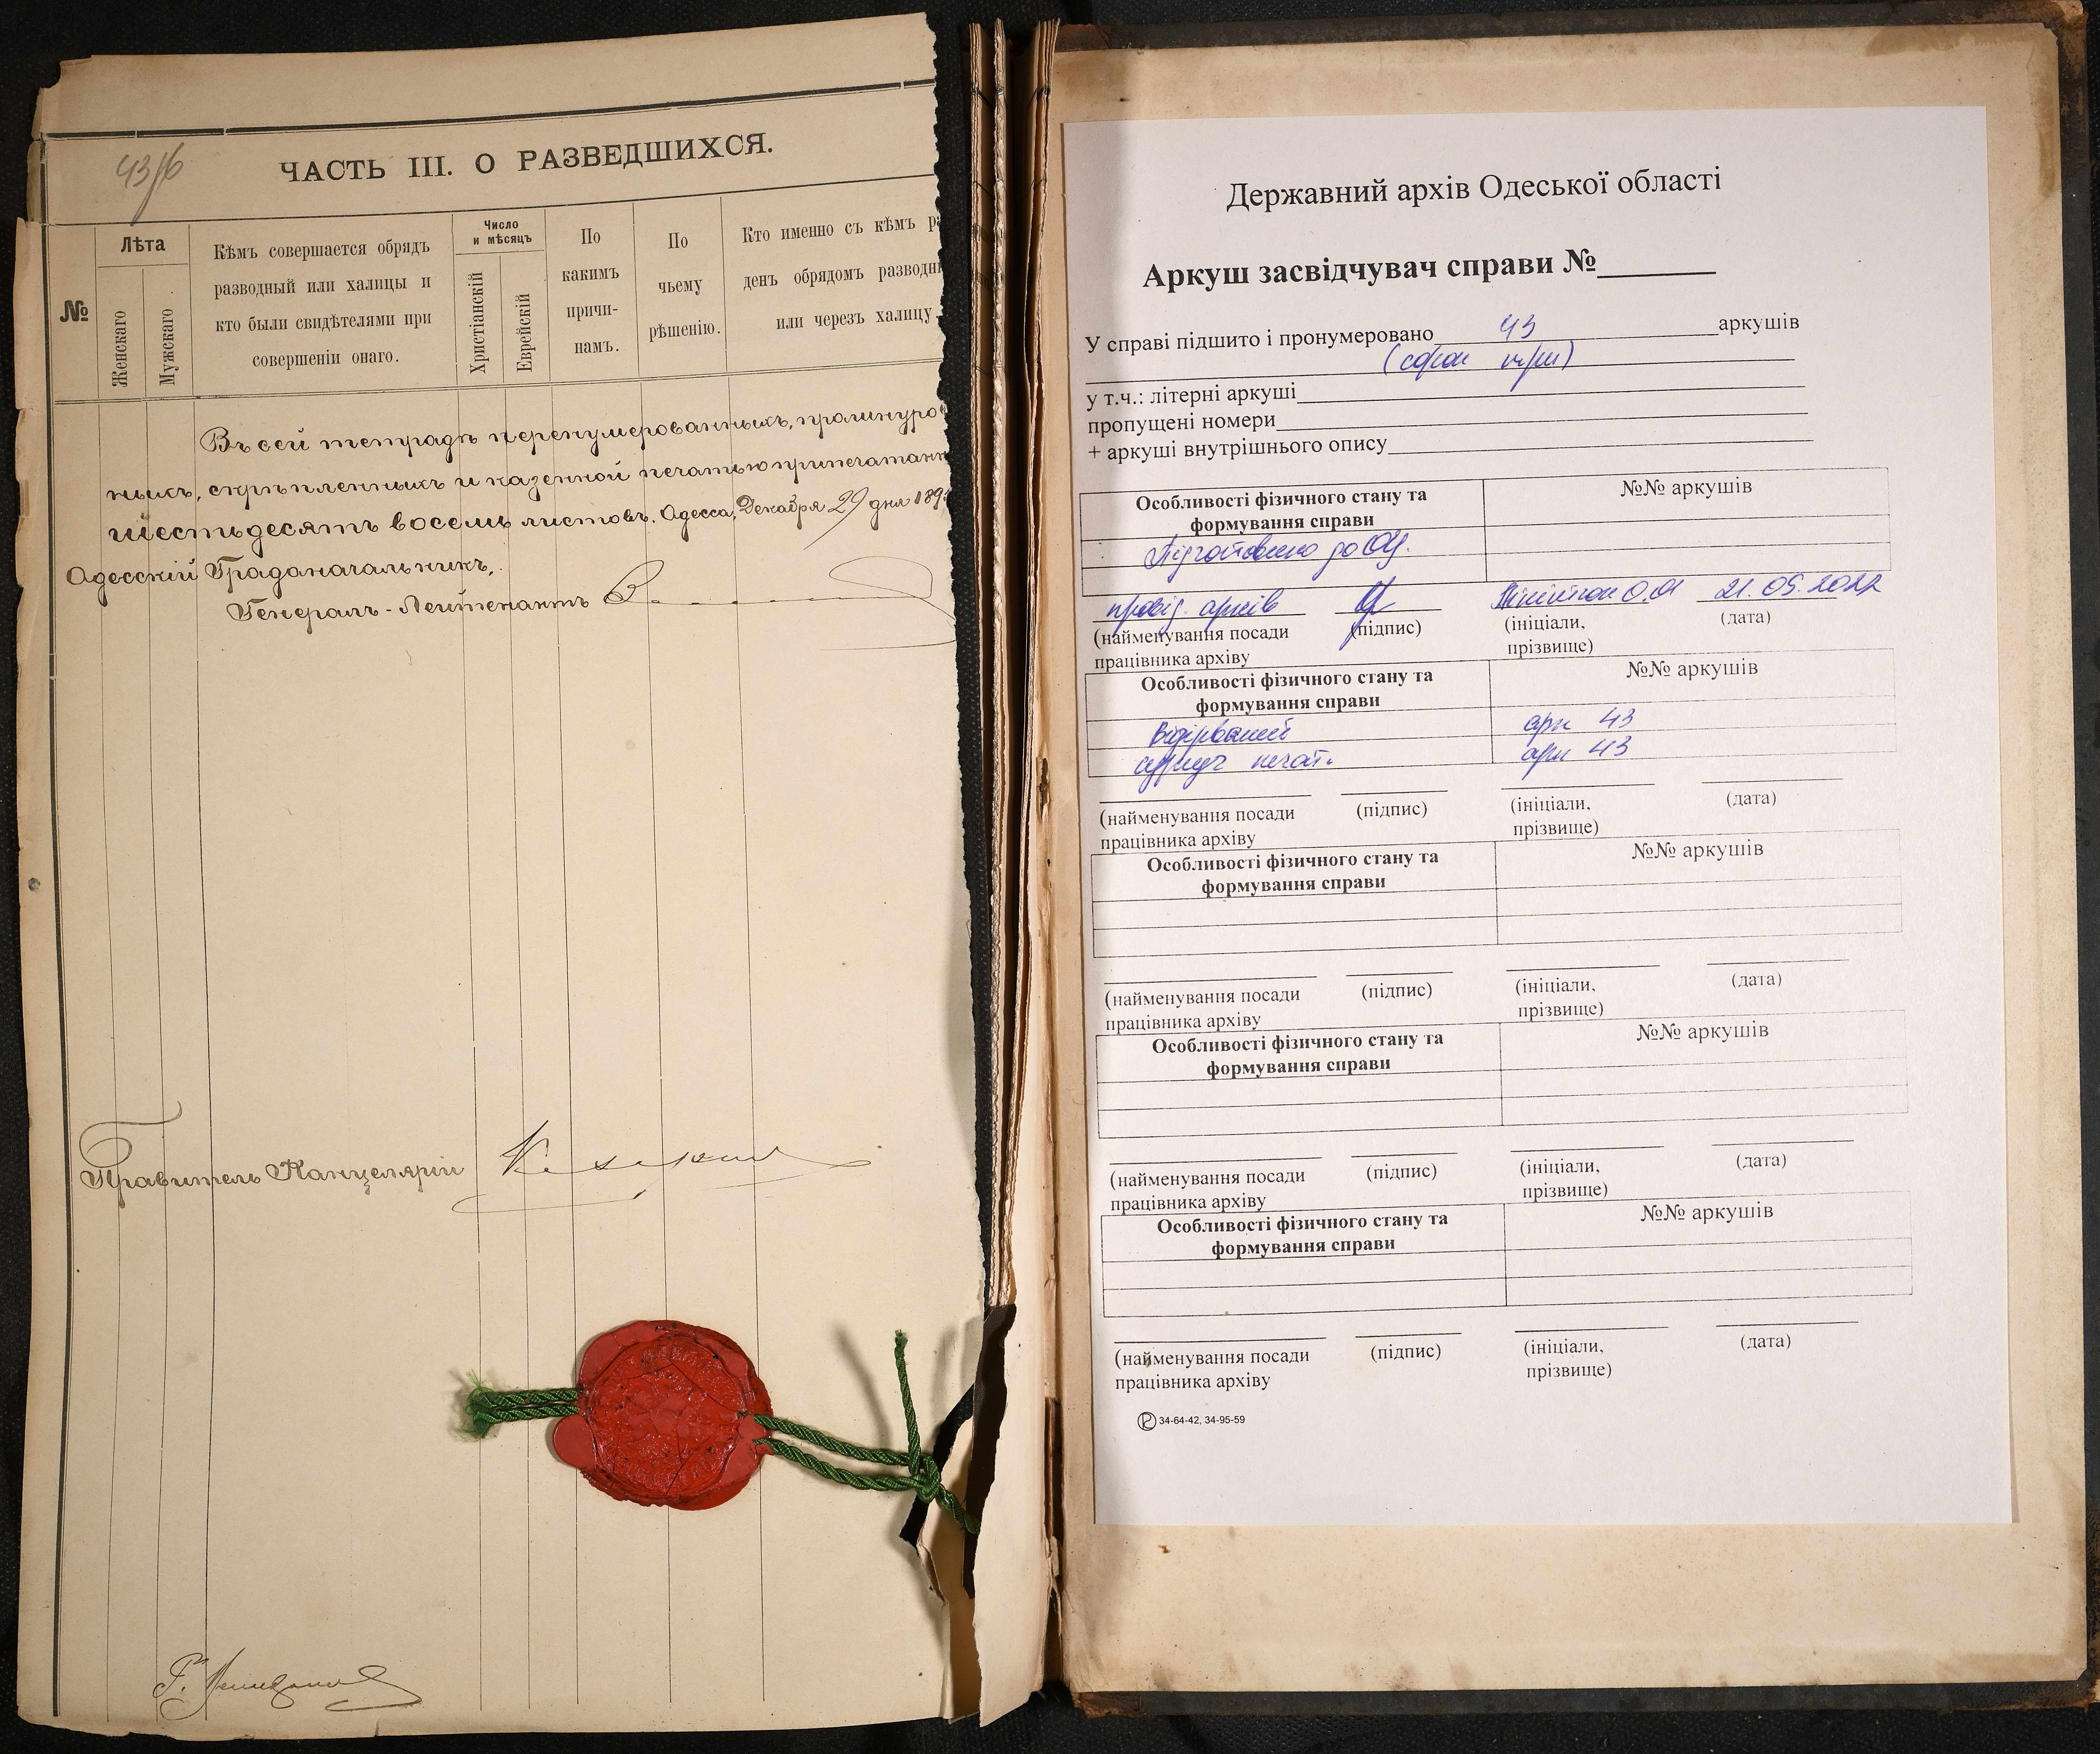 43об
ЧАСТЬ III. О РАЗВЕДШИХСЯ.
№
Лѣта
Женскаго
Мужскаго
Кѣмъ совершается обрядъ
разводный или халицы и
кто были свидѣтелями при
совершеніи онаго.
Число
и мѣсяцъ
Христіанскій
Еврейскій
По
какимъ
причи-
намъ.
По
чьему
рѣшенію.
Кто именно съ кѣмъ
денъ обрядомъ
или черезъ халицу
Въ сей тетради перенумерованныхъ, прошнуро
ныхъ, скрѣпленныхъ и казенной печатью припечатанн
шестьдесятъ восемь листовъ. Одесса, Декабря 29 дня 189
Одесскій Градоначальникъ,
Генералъ-Лейтенантъ
Правитель Канцеляріи
Державний архів Одеської області
Аркуш засвідчувач справи №
У справі підшито і пронумеровано 43 аркушів
(сорок три)
у т.ч.: літерні аркуші
пропущені номери
+ аркуші внутрішнього опису
Особливості фізичного стану та
формування справи
№№ аркушів
Підготовлено до ОЦ.
провід. архів 21.05.2022
(найменування посади
працівника архіву
(підпис)
(ініціали,
прізвище)
(дата)
Особливості фізичного стану та
формування справи
№№ аркушів
Відірваний арк 43
сургуч печат. арк 43
(найменування посади
працівника архіву
(підпис)
(ініціали,
прізвище)
(дата)
Особливості фізичного стану та
формування справи
№№ аркушів
(найменування посади
працівника архіву
(підпис)
(ініціали,
прізвище)
(дата)
Особливості фізичного стану та
формування справи
№№ аркушів
(найменування посади
працівника архіву
(підпис)
(ініціали,
прізвище)
(дата)
Особливості фізичного стану та
формування справи
№№ аркушів
(найменування посади
працівника архіву
(підпис)
(ініціали,
прізвище)
(дата)
34-64-42, 34-95-59